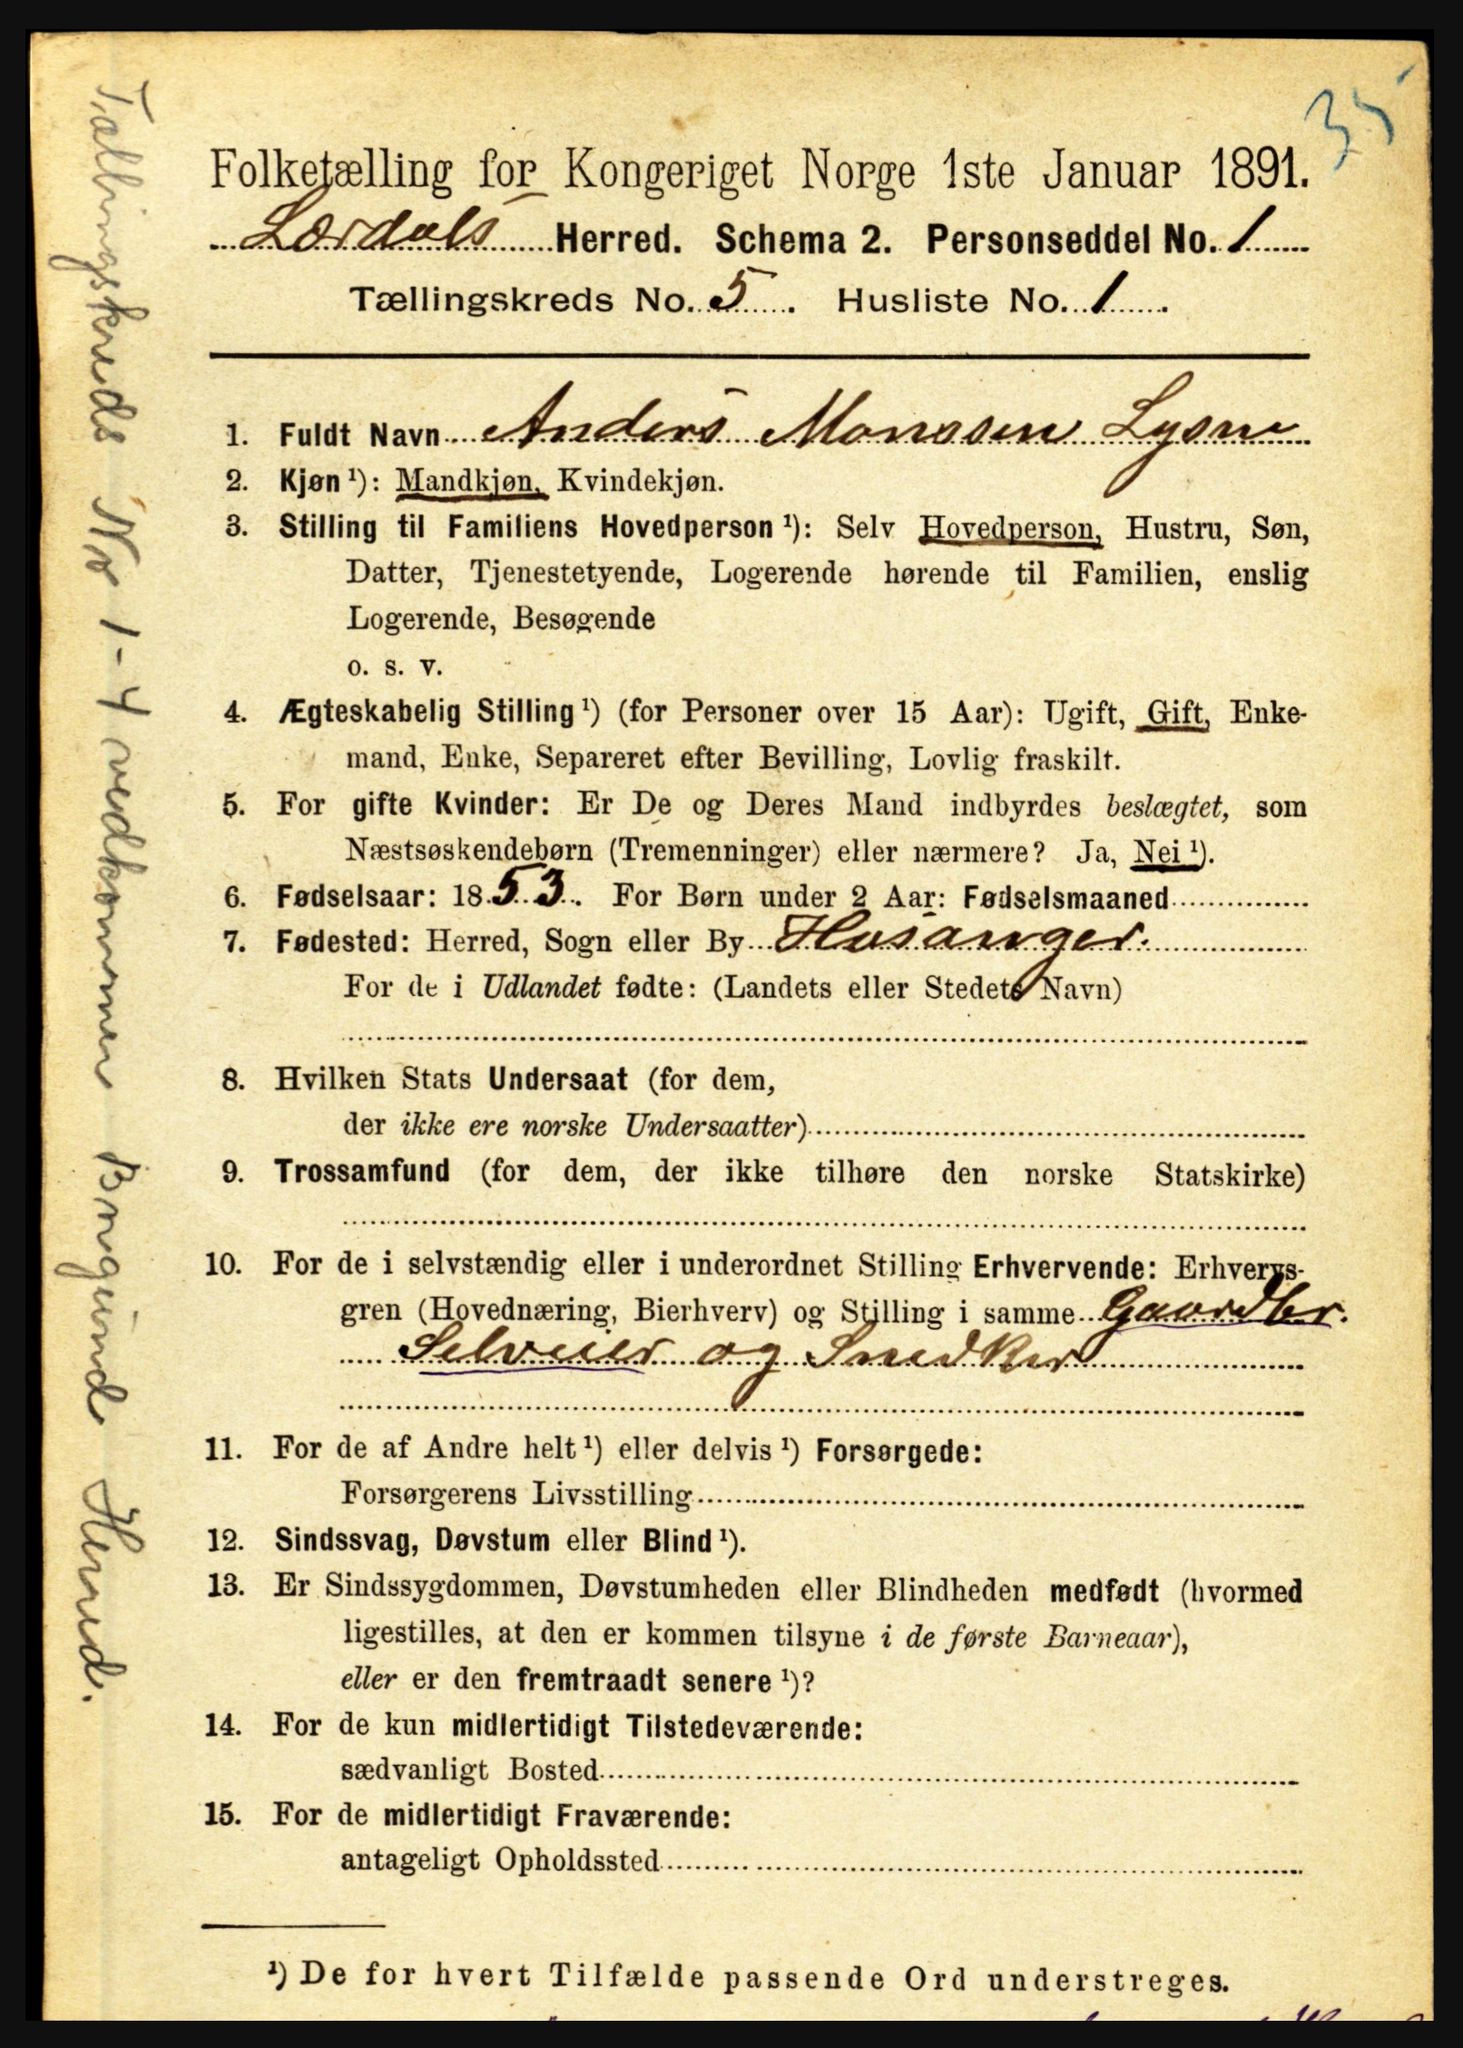 35
Folketælling for Kongeriget Norge 1ste Januar 1891.
Lærdals Herred. Schema 2. Personseddel No. 1
Tællingskreds No. 5. Husliste No. 1.
1. Fuldt Navn Anders Monssen Lysne
2. Kjøn ¹): Mandkjøn, Kvindekjøn.
3. Stilling til Familiens Hovedperson ¹): Selv Hovedperson, Hustru, Søn,
Datter, Tjenestetyende, Logerende hørende til Familien, enslig
Logerende, Besøgende
o. s. v.
4. Ægteskabelig Stilling ¹) (for Personer over 15 Aar): Ugift, Gift, Enke-
mand, Enke, Separeret efter Bevilling, Lovlig fraskilt.
5. For gifte Kvinder: Er De og Deres Mand indbyrdes beslægtet, som
Næstsøskendebørn (Tremenninger) eller nærmere? Ja, Nei ¹).
6. Fødselsaar: 1853. For Børn under 2 Aar: Fødselsmaaned
7. Fødested: Herred, Sogn eller By Hosanger.
For de i Udlandet fødte: (Landets eller Stedets Navn)
8. Hvilken Stats Undersaat (for dem,
der ikke ere norske Undersaatter)
9. Trossamfund (for dem, der ikke tilhøre den norske Statskirke)
10. For de i selvstændig eller i underordnet Stilling Erhvervende: Erhvervs-
gren (Hovednæring, Bierhverv) og Stilling i samme Gaardbr.
Selveier og Snedker
11. For de af Andre helt ¹) eller delvis ¹) Forsørgede:
Forsørgerens Livsstilling
12. Sindssvag, Døvstum eller Blind ¹).
13. Er Sindssygdommen, Døvstumheden eller Blindheden medfødt (hvormed
ligestilles, at den er kommen tilsyne i de første Barneaar),
eller er den fremtraadt senere ¹)?
14. For de kun midlertidigt Tilstedeværende:
sædvanligt Bosted
15. For de midlertidigt Fraværende:
antageligt Opholdssted
¹) De for hvert Tilfælde passende Ord understreges.
Tællingskreds No 1-4 vedkommer Borgund Herred.